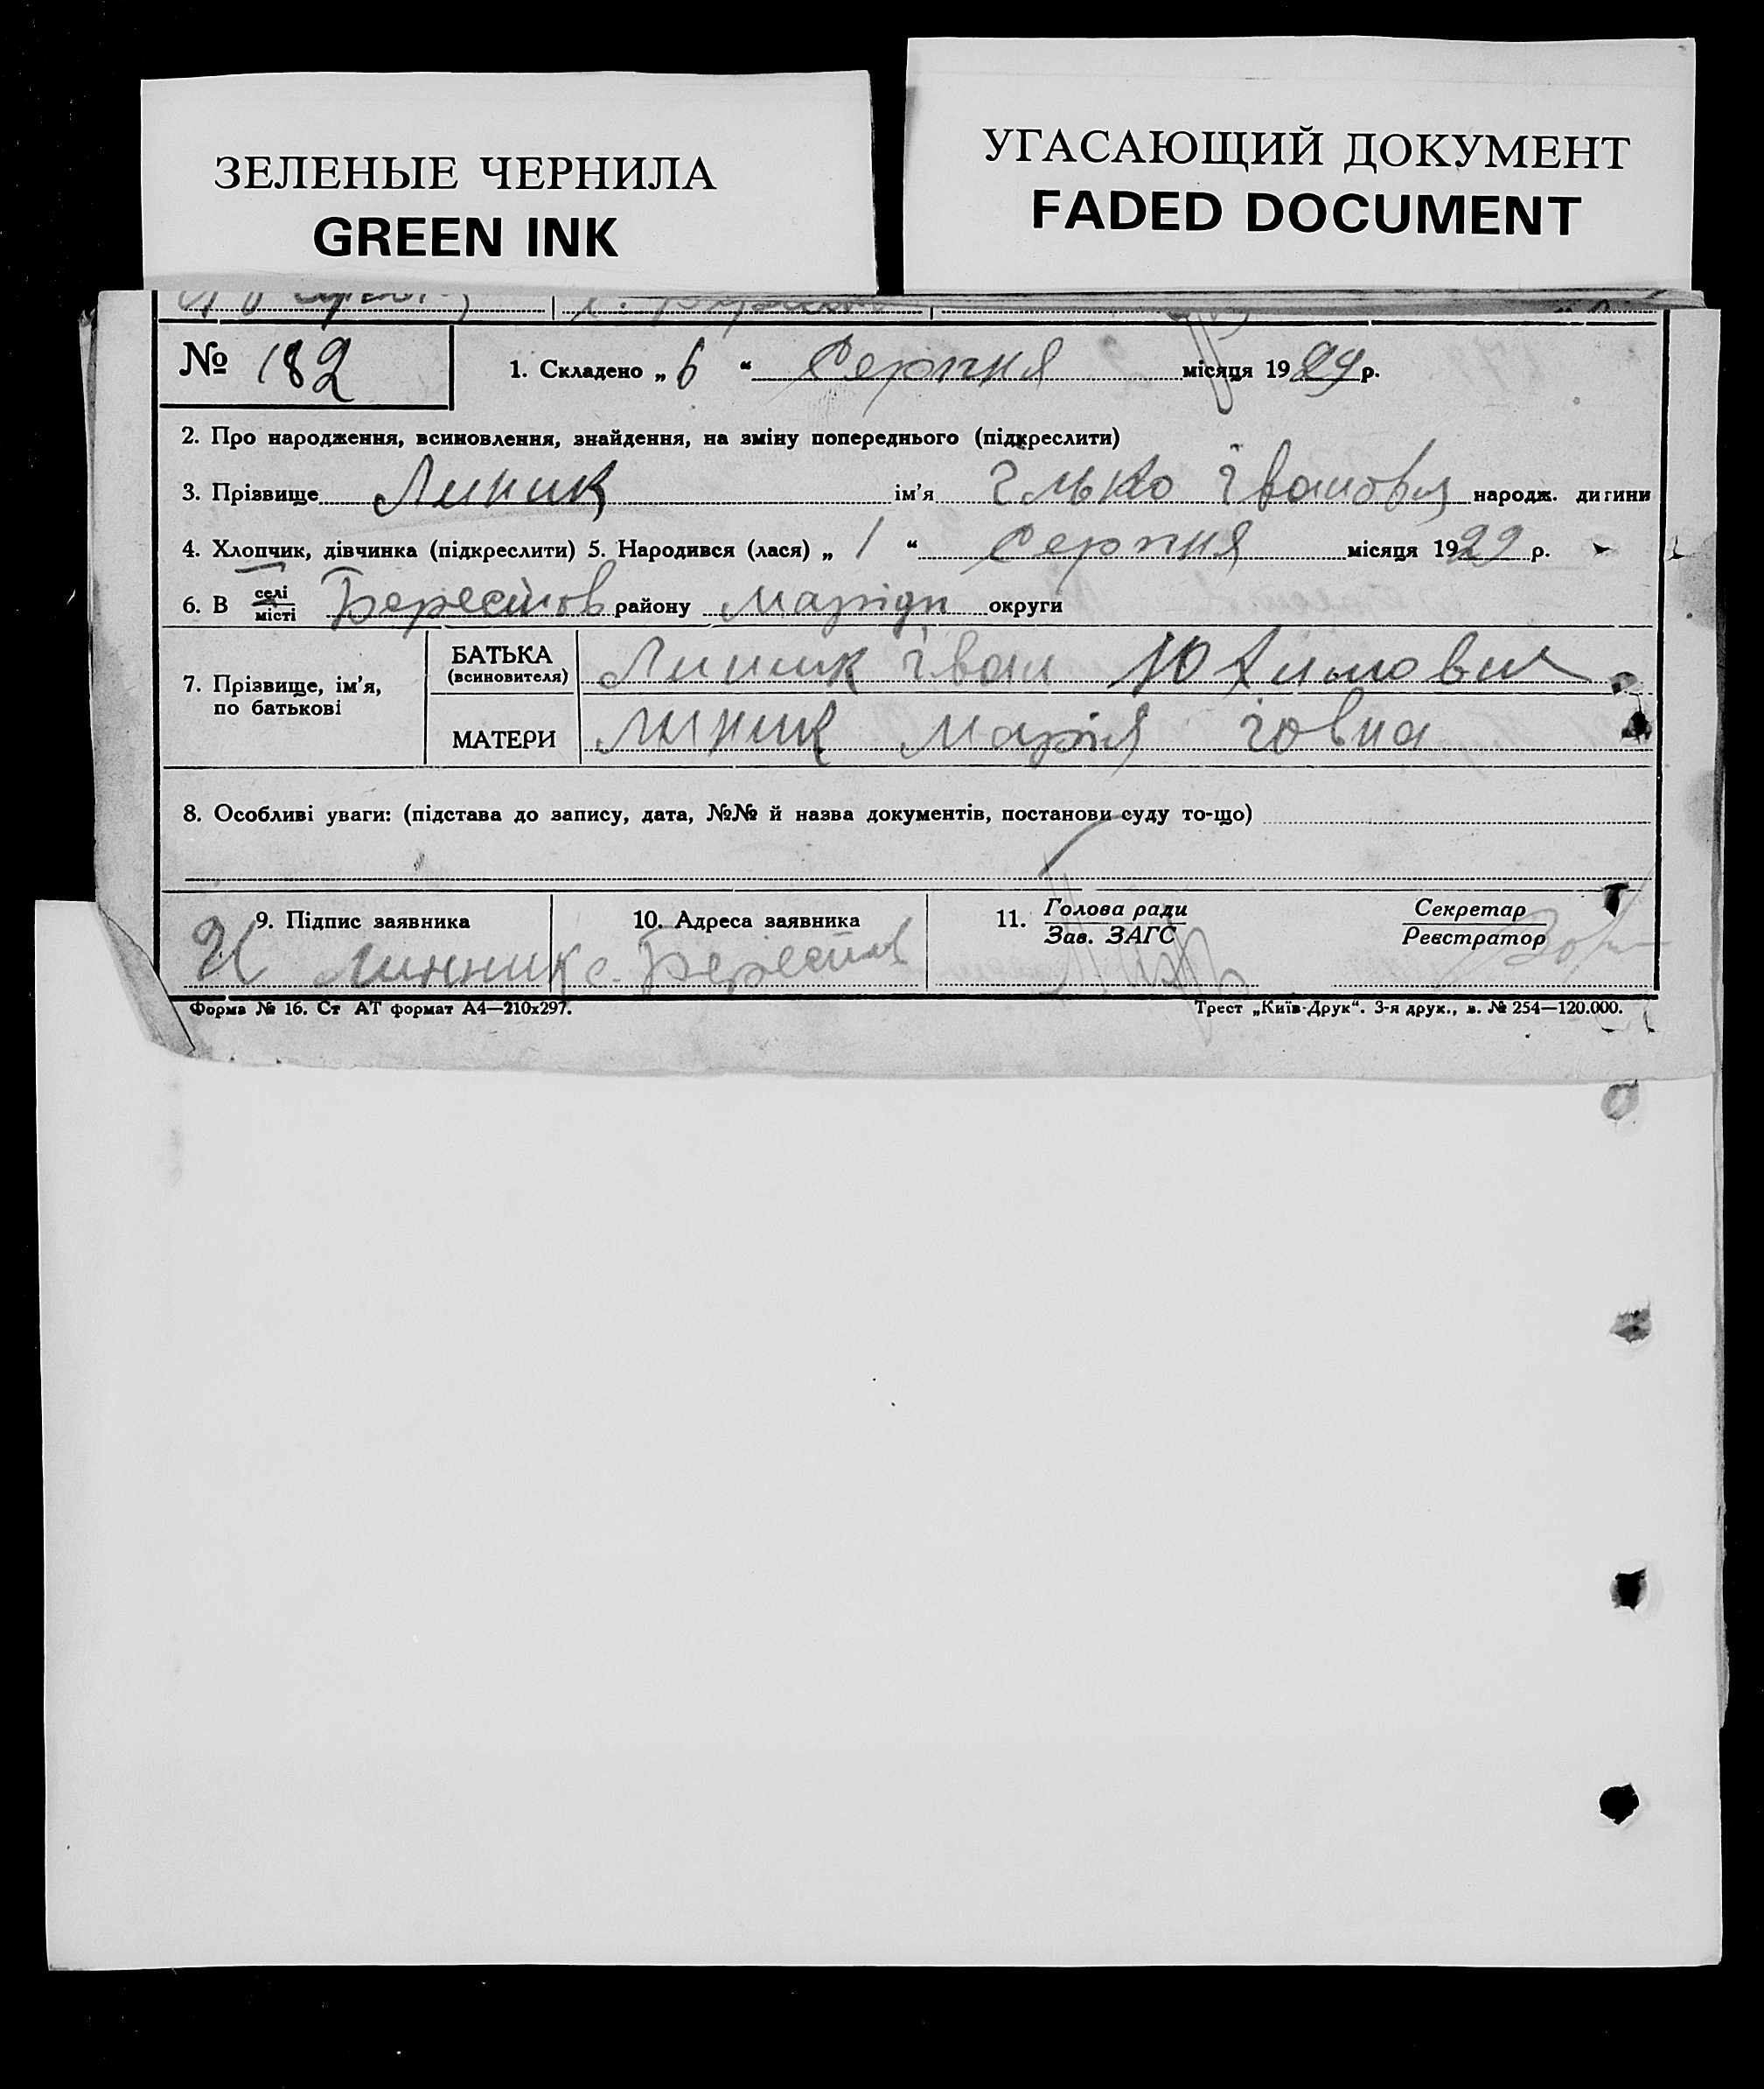 ЗЕЛЕНЫЕ ЧЕРНИЛА
GREEN INK
УГАСАЮЩИЙ ДОКУМЕНТ
FADED DOCUMENT
№ 182
1. Складено „ 6 “ Серпня місяця 1929 р.
2. Про народження, всиновлення, знайдення, на зміну попереднього (підкреслити)
3. Прізвище Линик ім’я Ілько Іванович народж. дитини
4. Хлопчик, дівчинка (підкреслити) 5. Народився (лася) „ 1 “ Серпня місяця 1929 р.
6. В селі/місті Берестов району Маріуп округи
7. Прізвище, ім’я, по батькові
БАТЬКА (всиновителя) Линик Іван Юхимович
МАТЕРИ Линик Марія Іовна
8. Особливі уваги: (підстава до запису, дата, №№ й назва документів, постанови суду то-що)
9. Підпис заявника
10. Адреса заявника
11. Голова ради / Зав. ЗАГС
Секретар / Реєстратор
И Линник
с. Берестов
Форма № 16. Ст АТ формат А4—210х297.
Трест „Київ-Друк“. 3-я друк., з. № 254—120.000.